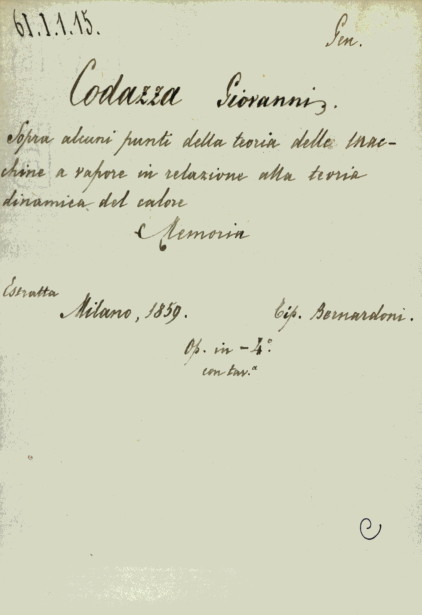 61.I.1.15.
Gen.
Codazza Giovanni.
Sopra alcuni punti della teoria delle mac-
chine a vapore in relazione alla teoria
dinamica del calore
Memoria
Estratta
Milano, 1859. Tip. Bernardoni.
Op. in-4°.
con tav.ª
C